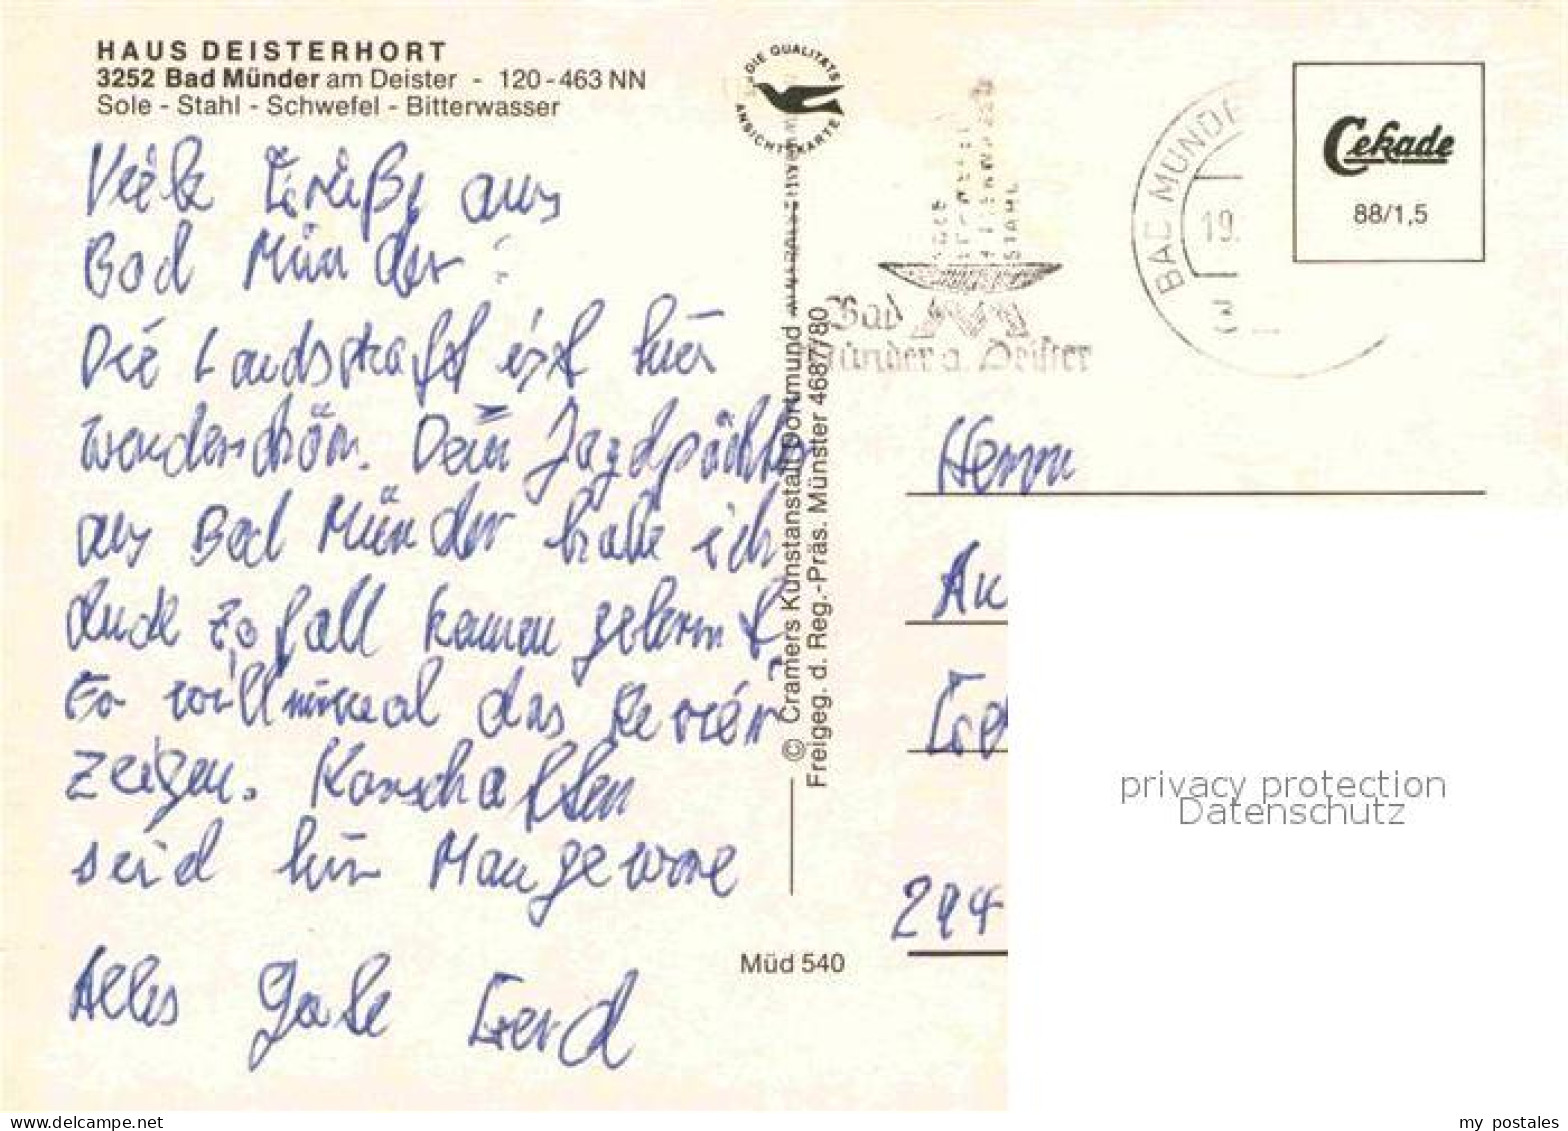 HAUS DEISTERHORT
3252 Bad Münder am Deister - 120-463 NN
Sole - Stahl - Schwefel - Bitterwasser
Viele Grüße aus
Bad Münder
Die Landschaft ist hier
wunderschön. Dein Jagdpächter
aus Bad Münder habe ich
durch Zufall kennen gelernt.
Er will mir mal das Revier
zeigen. Karschaften
seid hier Mangeware
Alles Gute Gerd
DIE QUALITÄTS
ANSICHTSKARTE
© Cramers Kunstanstalt Dortmund
Freigeg. d. Reg.-Präs. Münster 4687/80
Müd 540
STAHL
Bad
Münder a. Deister
BAD MÜNDE
19.
3
Cekade
88/1,5
Herrn
An
Ge
294
privacy protection
Datenschutz
delcampe.net
my_postales